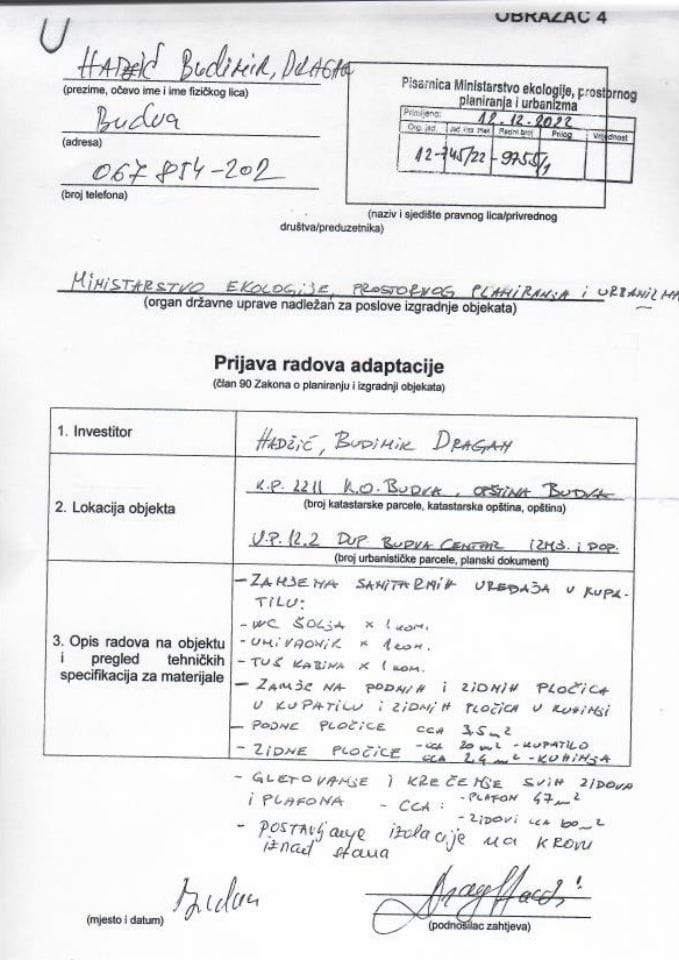 OBRAZAC 4
U
HADŽIĆ BUDIMIR, DRAGAN
(prezime, očevo ime i ime fizičkog lica)
Budva
(adresa)
067 854-202
(broj telefona)
Pisarnica Ministarstvo ekologije, prostornog
planiranja i urbanizma
Primljeno: 12.12.2022
Org. jed. Jed. klas. znak Redni broj Prilog Vrijednost
12-745/22-9755/1
(naziv i sjedište pravnog lica/privrednog
društva/preduzetnika)
MINISTARSTVO EKOLOGIJE, PROSTORNOG PLANIRANJA I URBANIZMA
(organ državne uprave nadležan za poslove izgradnje objekata)
Prijava radova adaptacije
(član 90 Zakona o planiranju i izgradnji objekata)
1. Investitor
HADŽIĆ, BUDIMIR DRAGAN
2. Lokacija objekta
K.P. 2211 K.O. BUDVA, OPŠTINA BUDVA
(broj katastarske parcele, katastarska opština, opština)
U.P. 12.2 DUP BUDVA CENTAR IZMJ. I DOP.
(broj urbanističke parcele, planski dokument)
3. Opis radova na objektu
i pregled tehničkih
specifikacija za materijale
- ZAMJENA SANITARNIH UREĐAJA U KUPA-
TILU:
- WC ŠOLJA x 1 kom.
- UMIVAONIK x 1 kom.
- TUŠ KABINA x 1 kom.
- ZAMJENA PODNIH I ZIDNIH PLOČICA
U KUPATILU I ZIDNIH PLOČICA U KUHINJI
- PODNE PLOČICE CCA 3,5 m2
- ZIDNE PLOČICE - CCA 20 m2 - KUPATILO
CCA 2,4 m2 - KUHINJA
- GLETOVANJE I KREČENJE SVIH ZIDOVA
I PLAFONA - CCA: - PLAFON 47 m2
- ZIDOVI CCA 160 m2
- POSTAVLJANJE izolacije na KROVU
iznad stana
Budva
(mjesto i datum)
(podnosilac zahtjeva)